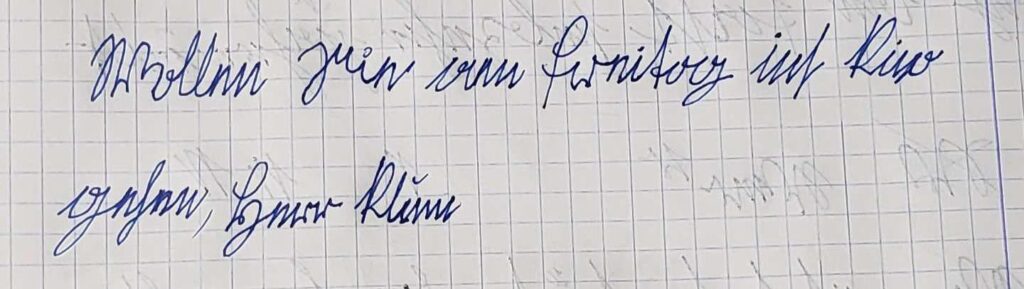 Wollen Sie am Freitag ins Kino
gehen, Herr Klein